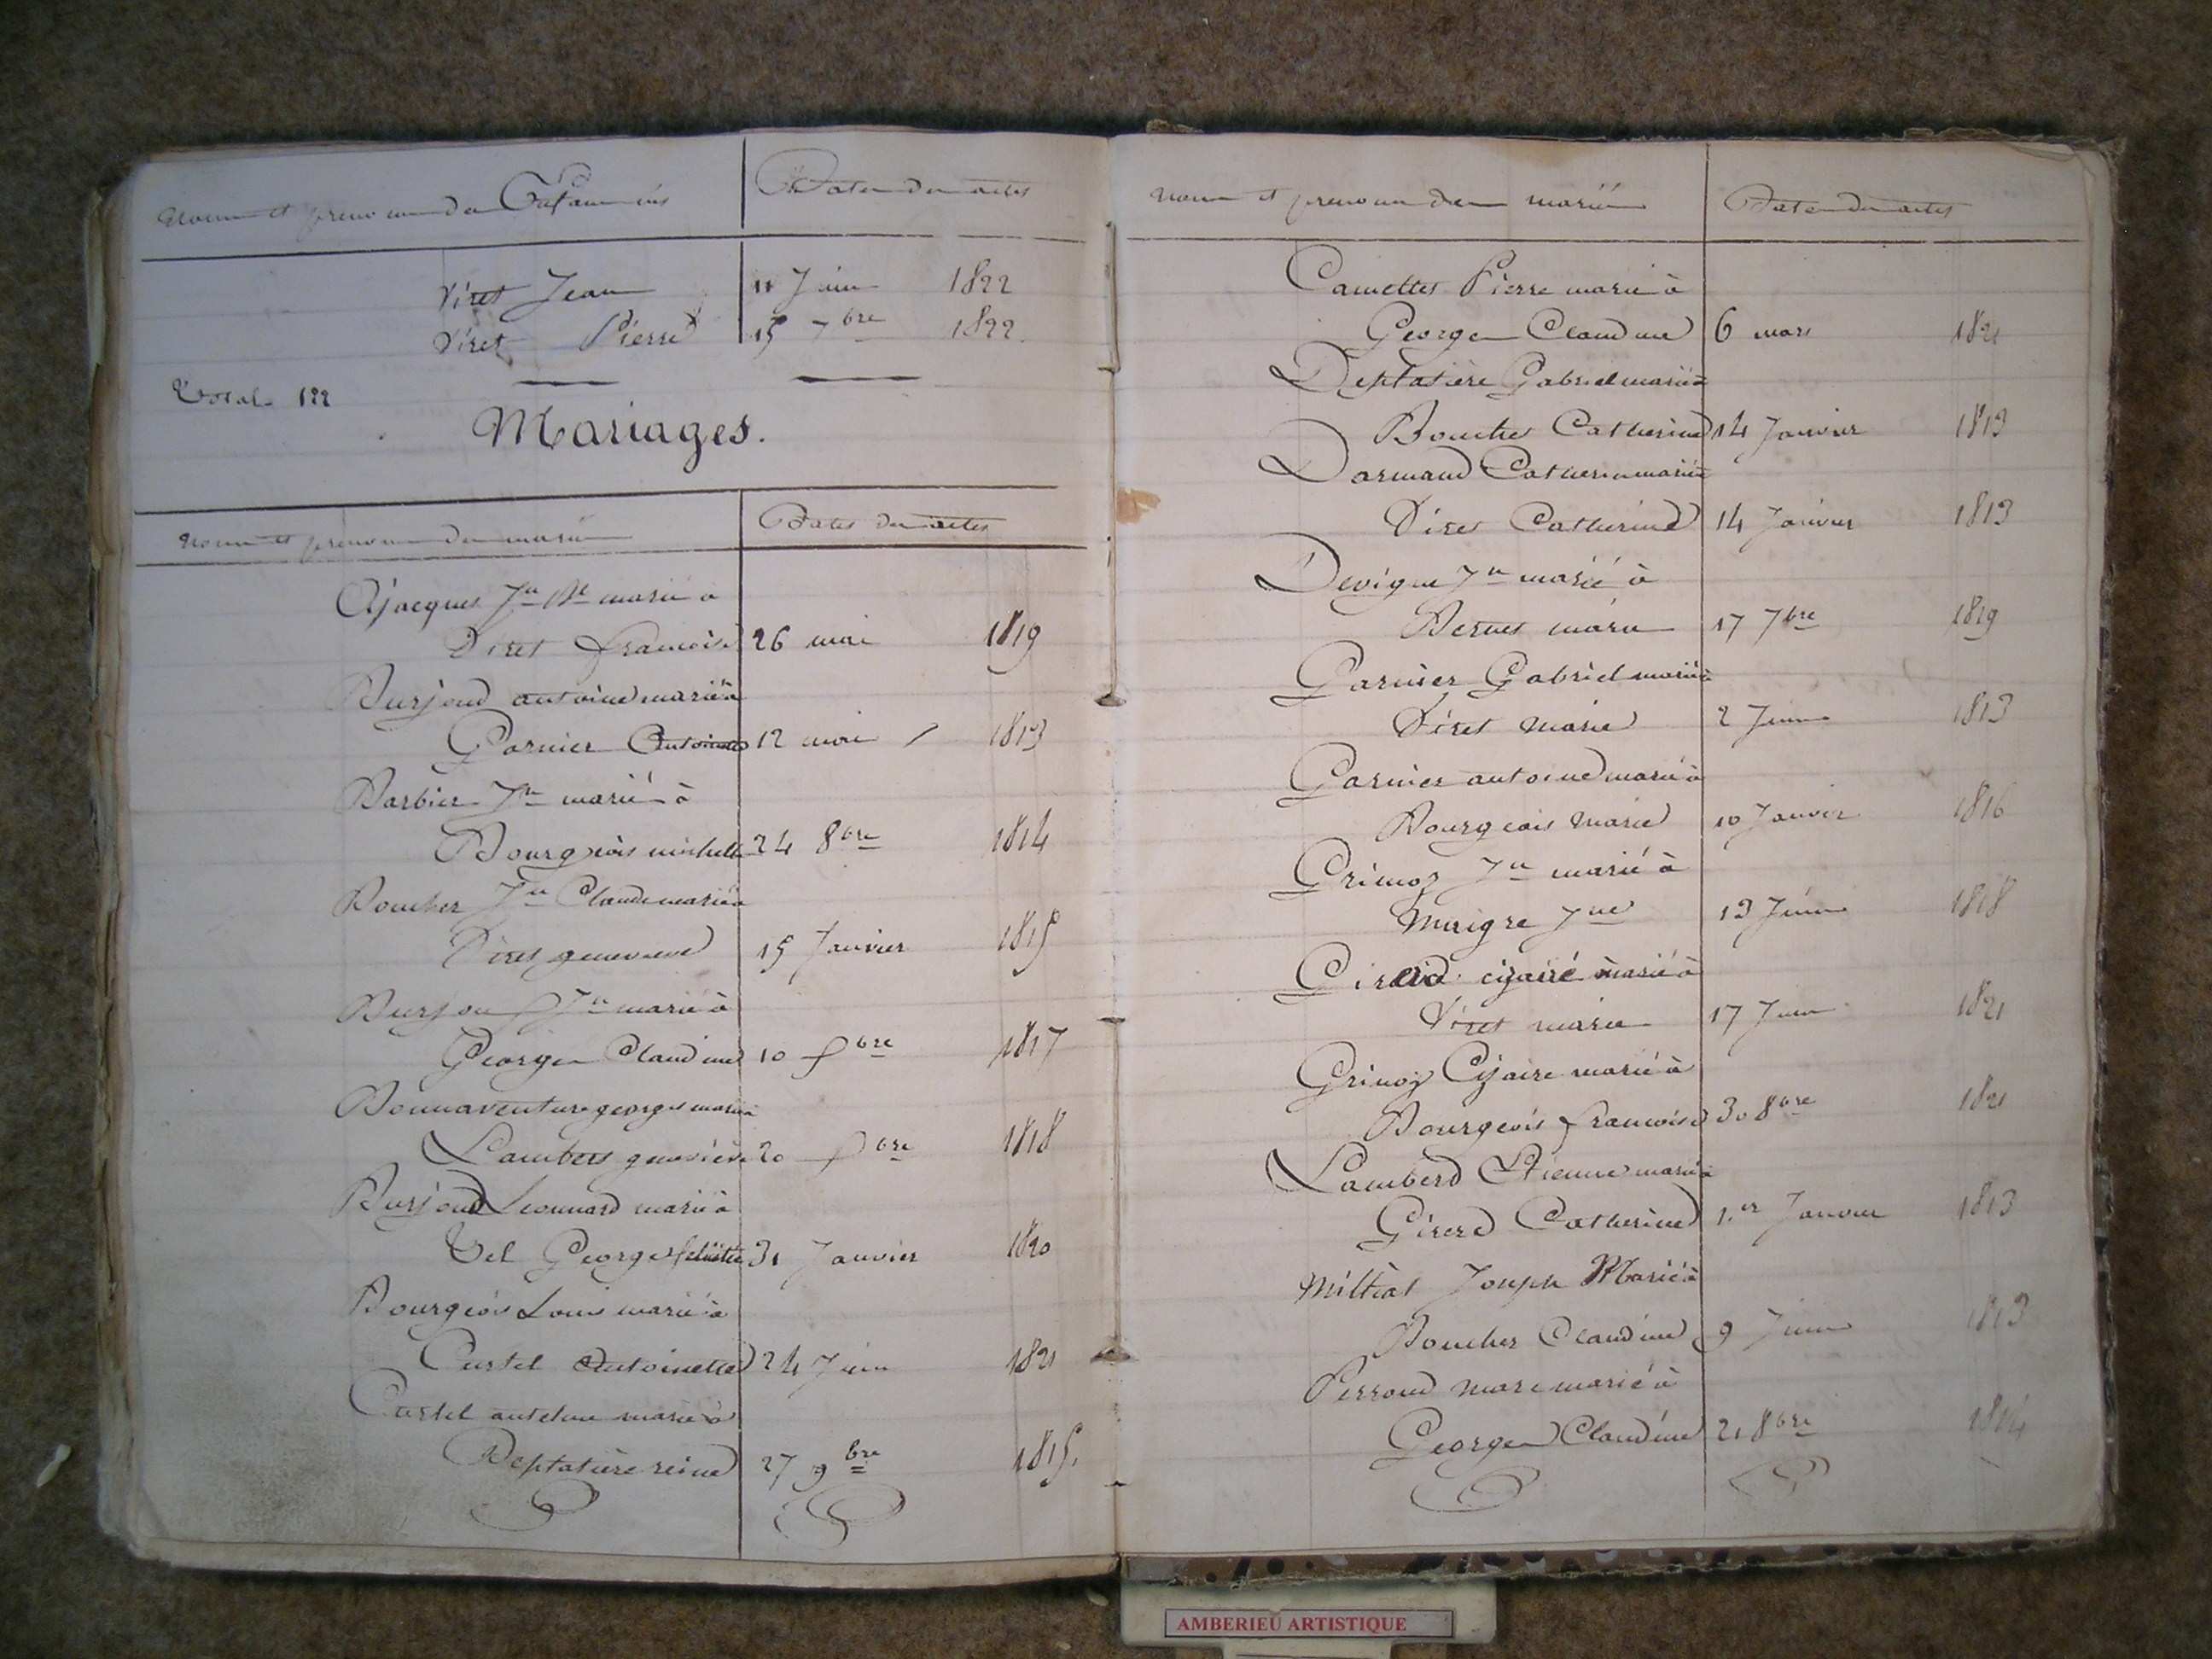 Noms et prenoms des Dates des actes
Viret Jean 11 Juin 1822
Viret Pierre 15 7bre 1822.
Total 122
Mariages.
Noms et prenoms des mariés Dates des actes
Ajacques Jn Bte marié à
Viret françoise 26 mai 1819
Burjoud antoine marié à
Garnier Antoinette 12 mai 1813
Barbier Jn marié à
Bourgeois michelle 24 8bre 1814
Boucher Jn Claude marié à
Viret genevieve 15 Janvier 1815
Burjoud Jn marié à
George Claudine 10 fbre 1817
Bonnaventure george marié à
Lambert genevieve 20 fbre 1818
Burjoud Leonnard marié à
Vel George 31 Janvier 1820
Bourgeois Louis marié à
Curtel Antoinette 24 Juin 1821
Curtel antelme marié à
Deptatière reine 27 9bre 1815.
Noms et prenoms des mariés Dates des actes
Pierre marié à
George Claudine 6 mars 1821
Deptatière Gabriel marié à
Boucher Catherine 14 Janvier 1813
Dormand Catherin marié à
Viret Catherine 14 Janvier 1813
Devigne Jn marié à
Bernet marie 17 7bre 1819
Garnier Gabriel marié à
Viret marie 2 Juin 1813
Garnier antoine marié à
Bourgeois marie 10 Janvier 1816
Grimoz Jn marié à
Maigre Jne 13 Juin 1818
Girard marié à
Viret marie 17 Juin 1821
Grinoz marié à
Bourgeois françoise 30 8bre 1821
Lamberd Etienne marié à
Girerd Catherine 1.er Janvier 1813
Milliat Joseph Marié à
Boucher Claudine 9 Juin 1813
Perroud marc marié à
George Claudine 21 8bre 1814
AMBERIEU ARTISTIQUE